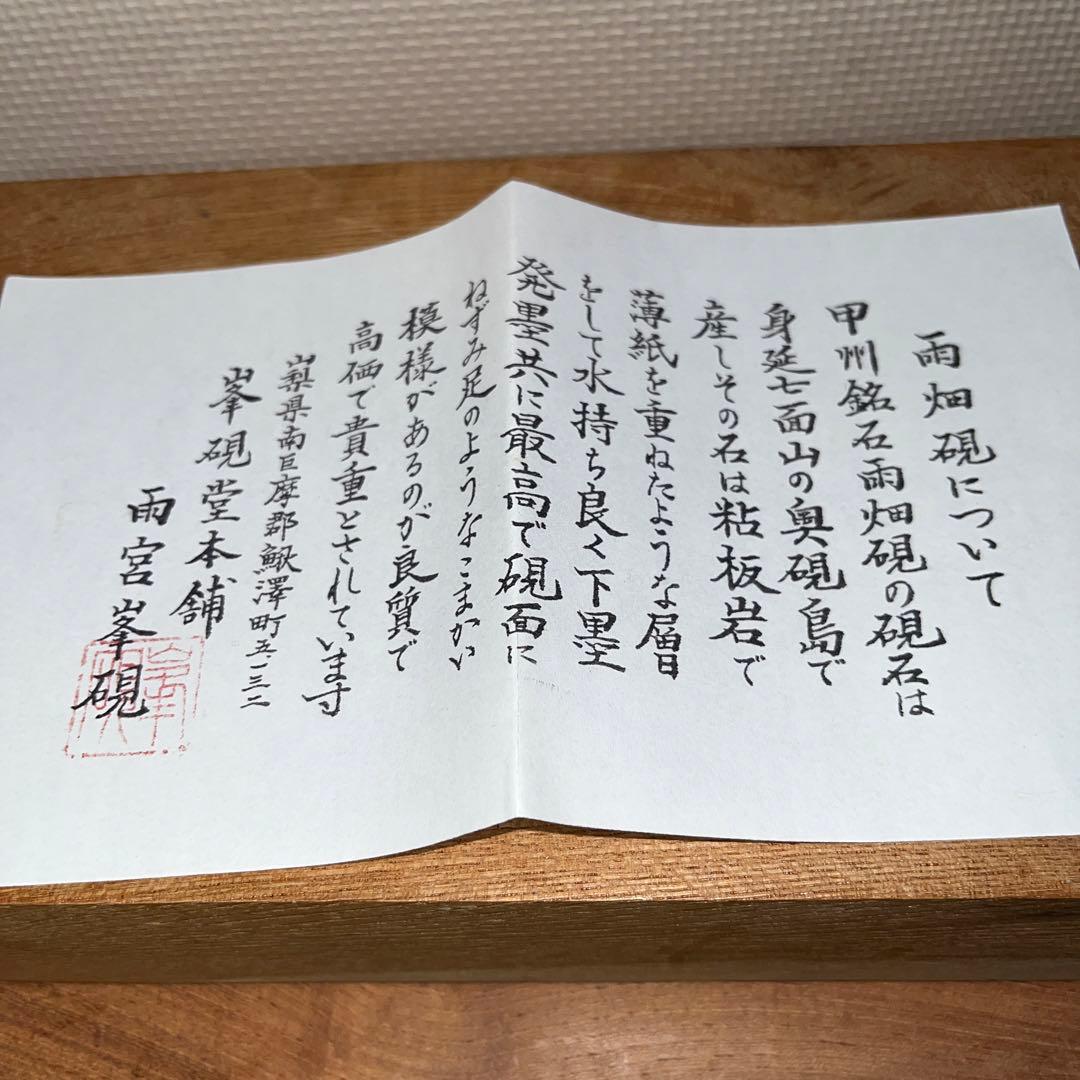 雨畑硯について
甲州銘石雨畑硯の硯石は
身延七面山の奥硯島で
産しその石は粘板岩で
薄紙を重ねたような層
をして水持ち良く下墨
発墨共に最高で硯面に
ねずみ足のようなこまかい
模様があるのが良質で
高価で貴重とされています
山梨県南巨摩郡鰍澤町五一三二
峯硯堂本舗
雨宮峯硯